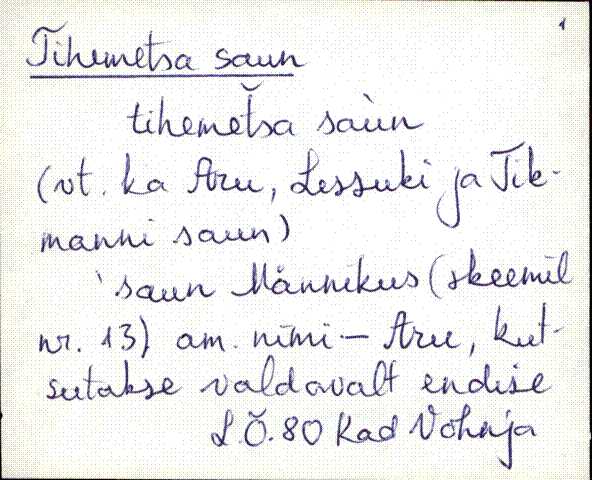 1
Tihemetsa saun
tihemeťsa saùn
(vt. ka Aru, Lessuki ja Tik-
manni saun)
`saun Männikus (skeemil
nr. 13) am. nimi – Aru, kut-
sutakse valdavalt endise
L.Õ. 80 Kad Vohnja